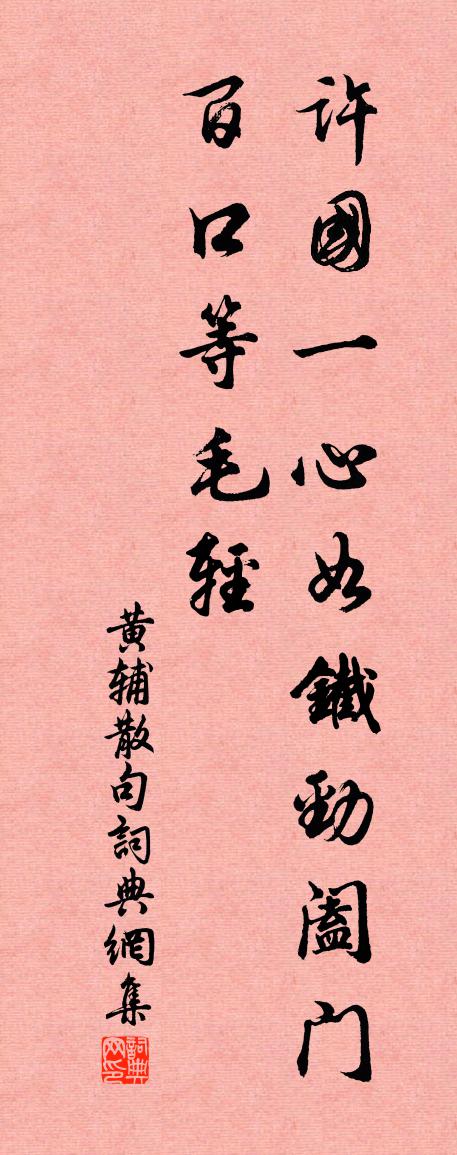 許國一心如鐵勁闔門
百口等毛輕
黄辅散句詞典網集
詞典网印